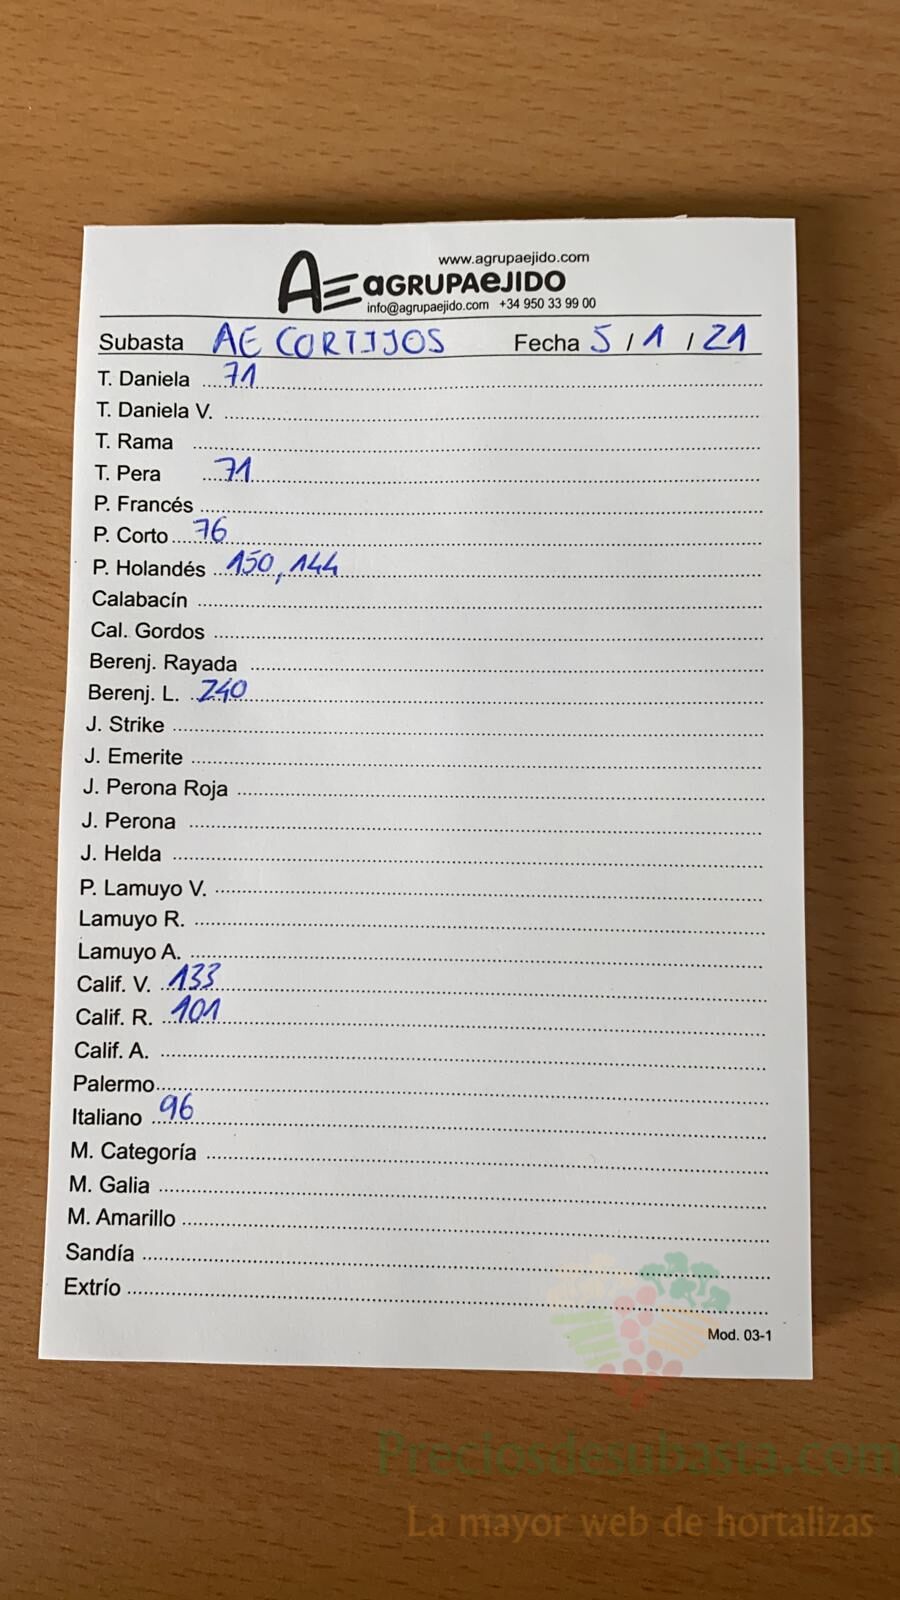 www.agrupaejido.com
AE aGRUPAeJIDO
info@agrupaejido.com +34 950 33 99 00
Subasta AE CORTIJOS Fecha 5 / 1 / 21
T. Daniela 71
T. Daniela V.
T. Rama
T. Pera 71
P. Francés
P. Corto 76
P. Holandés 150, 144
Calabacín
Cal. Gordos
Berenj. Rayada
Berenj. L. 240
J. Strike
J. Emerite
J. Perona Roja
J. Perona
J. Helda
P. Lamuyo V.
Lamuyo R.
Lamuyo A.
Calif. V. 133
Calif. R. 101
Calif. A.
Palermo
Italiano 96
M. Categoría
M. Galia
M. Amarillo
Sandía
Extrío
Mod. 03-1
Preciosdesubasta.com
La mayor web de hortalizas